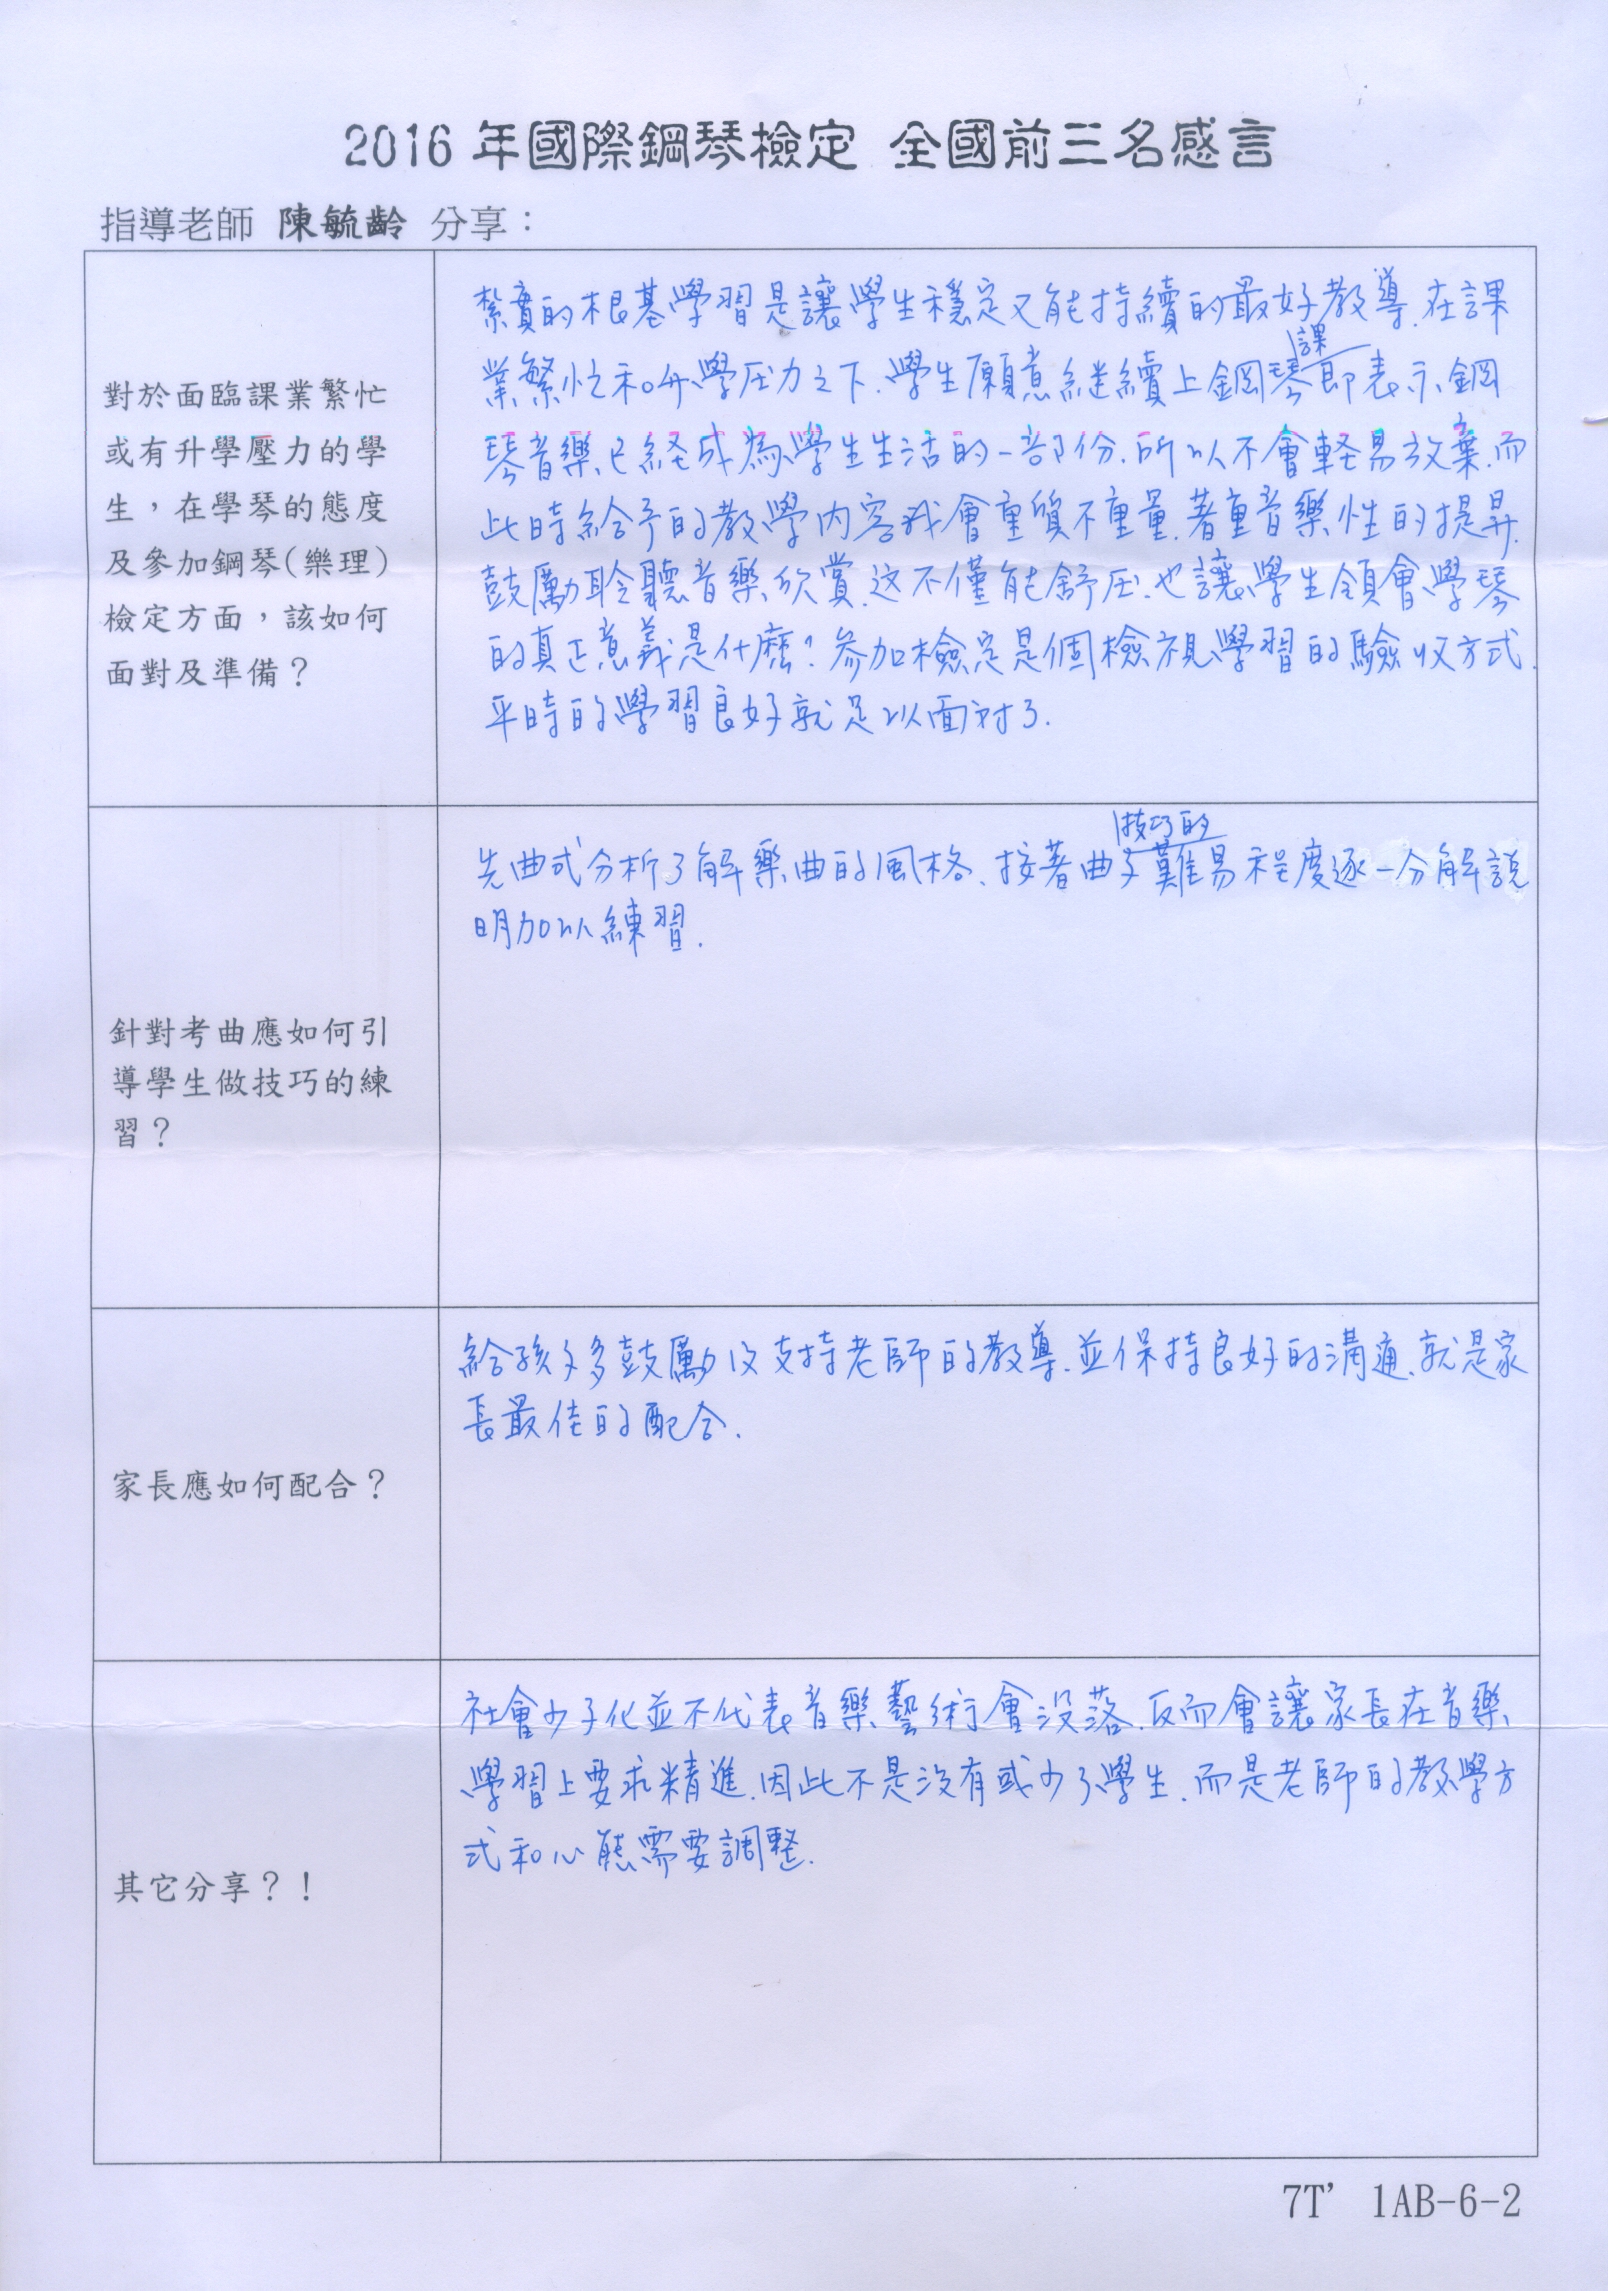 2016 年國際鋼琴檢定 全國前三名感言
指導老師 陳毓齡 分享：
對於面臨課業繁忙
或有升學壓力的學
生，在學琴的態度
及參加鋼琴(樂理)
檢定方面，該如何
面對及準備？
紮實的根基學習是讓學生穩定又能持續的最好教導.在課
業繁忙和升學压力之下.學生願意継續上鋼琴課即表示鋼
琴音樂已経成為學生生活的一部份.所以不會軽易放棄.而
此時給予的教學内容我會重質不重量.著重音樂性的提昇.
鼓勵聆聽音樂欣賞.这不僅能舒压.也讓學生領會學琴
的真正意義是什麼?參加檢定是個檢視學習的驗收方式.
平時的學習良好就足以面対了.
針對考曲應如何引
導學生做技巧的練
習？
先曲式分析了解樂曲的風格、接著曲子技巧的難易程度逐一分解說
明加以練習.
家長應如何配合？
給孩子多鼓勵及支持老師的教導.並保持良好的溝通.就是家
長最佳的配合.
其它分享？！
社會少子化並不代表音樂藝術會没落.反而會讓家長在音樂
學習上要求精進.因此不是沒有或少了學生.而是老師的教學方
式和心態需要調整.
7T' 1AB-6-2